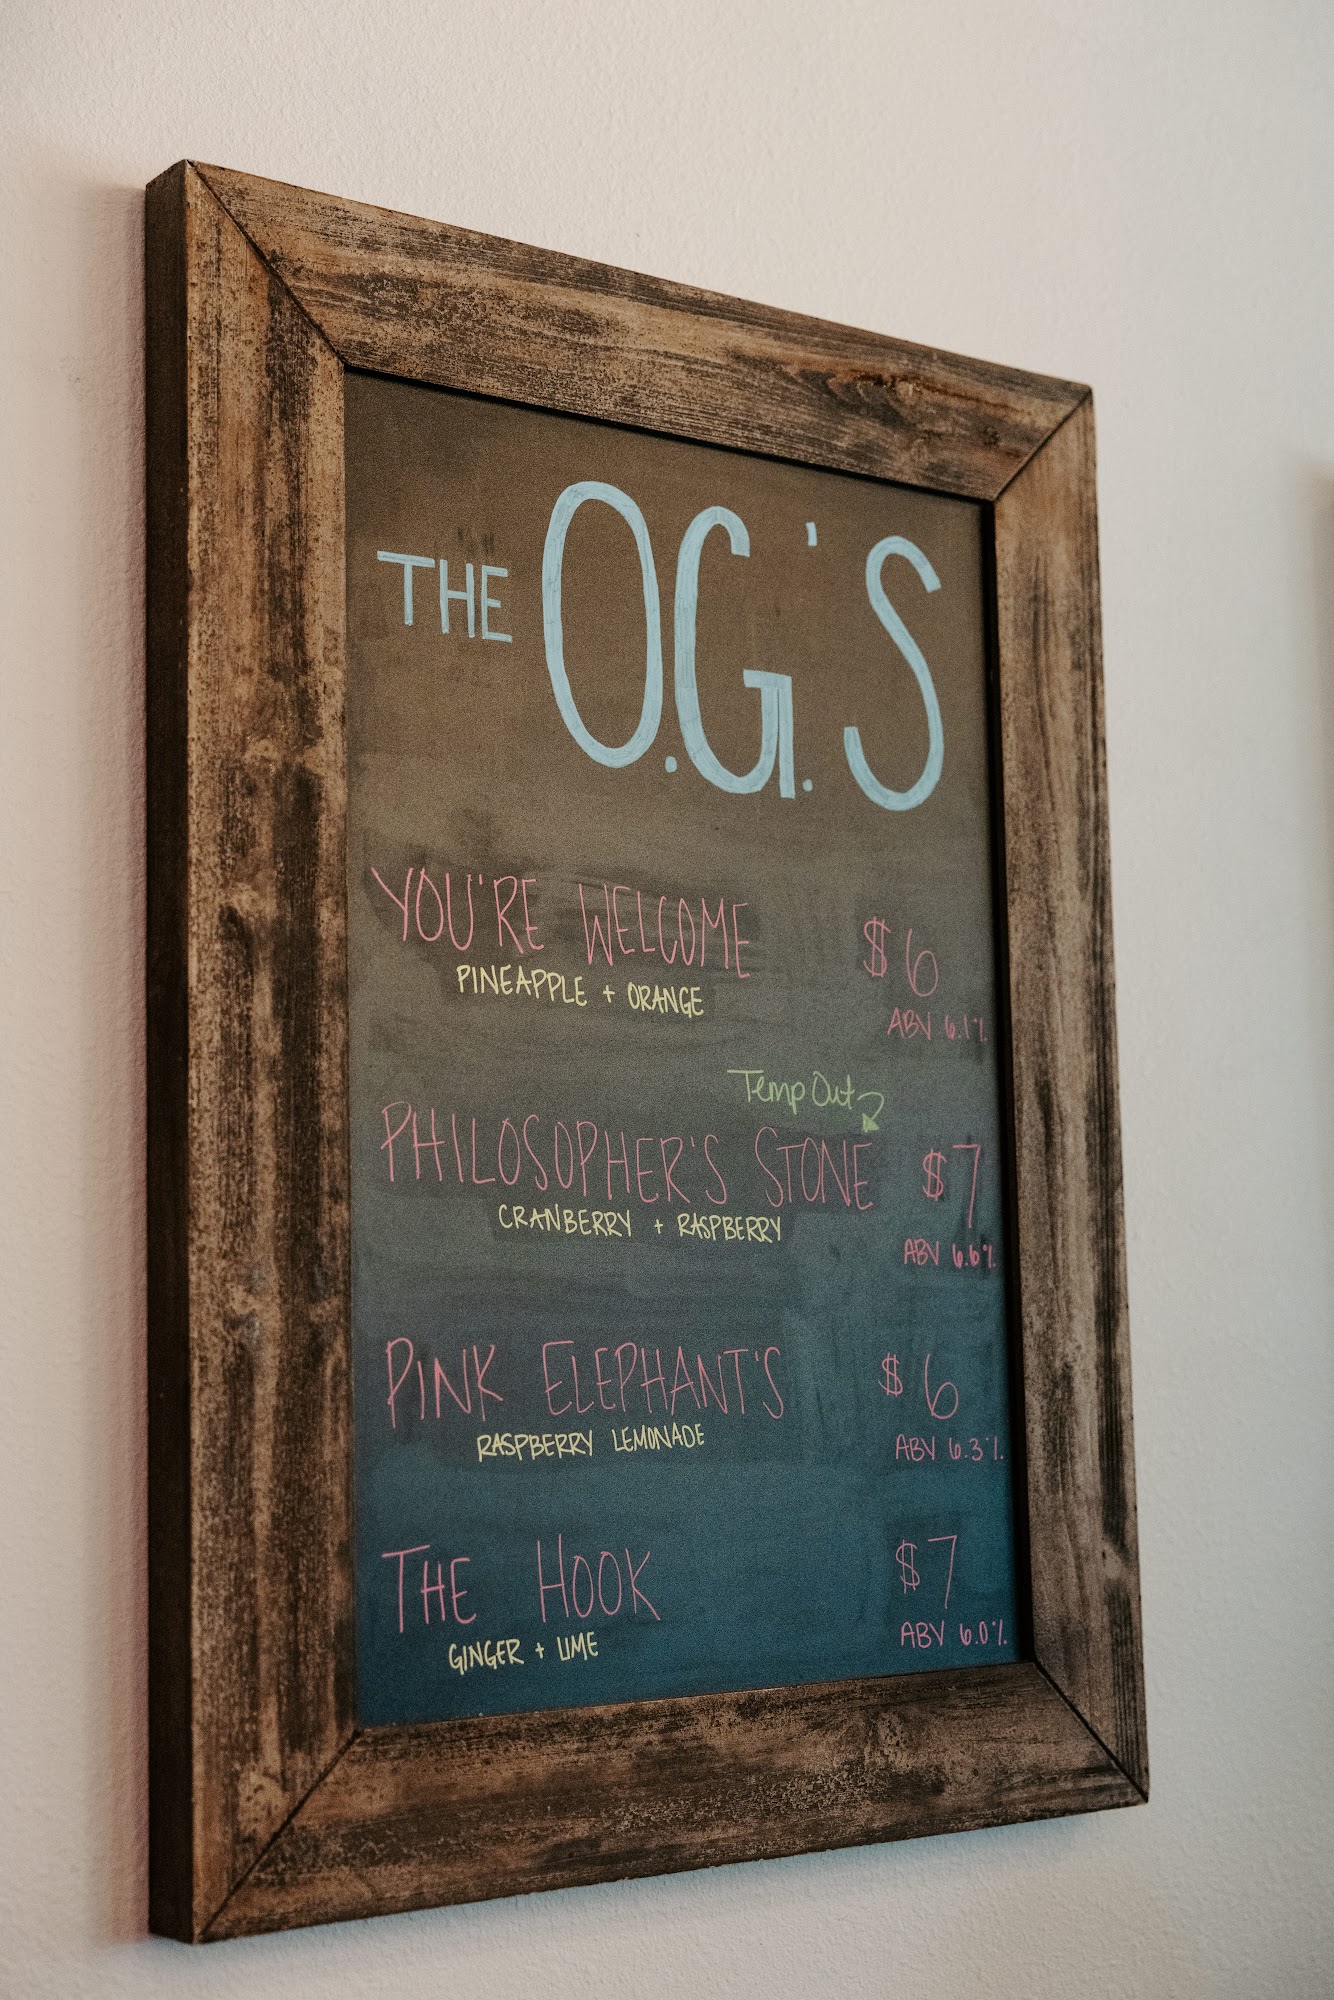 THE O.G.'S
YOU'RE WELCOME $6
PINEAPPLE + ORANGE
ABV 6.1%
Temp Out
PHILOSOPHER'S STONE $7
CRANBERRY + RASPBERRY
ABV 6.6%
PINK ELEPHANT'S $6
RASPBERRY LEMONADE
ABV 6.3%
THE HOOK $7
GINGER + LIME
ABV 6.0%